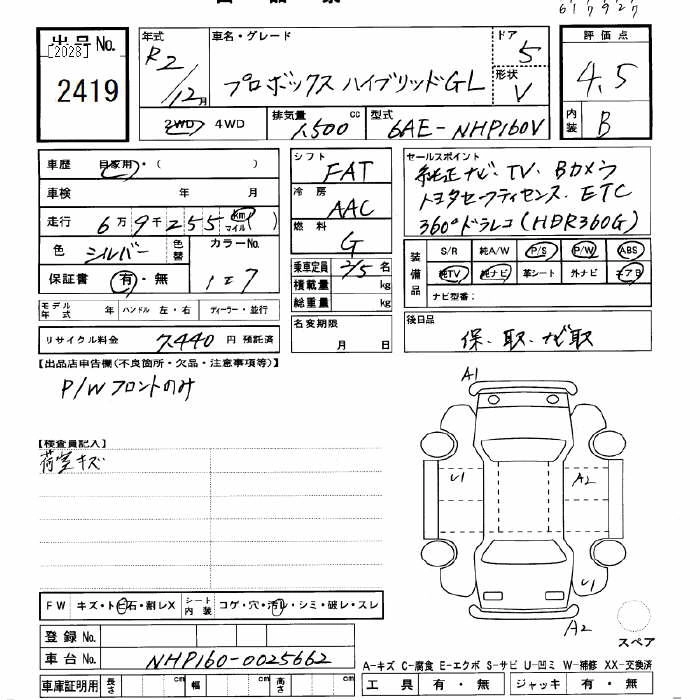 出品No.
[2028]
2419
年式
R2/12月
車名・グレード
プロボックス ハイブリッドGL
ドア
5
形状
V
評価点
4.5
内装
B
2WD 4WD
排気量 cc
1,500
型式
6AE-NHP160V
車歴 自家用・( )
車検 年 月
走行 6万9千255 km マイル ( )
色 シルバー 色替
カラーNo.
1E7
保証書 有・無
シフト FAT
冷房 AAC
燃料 G
乗車定員 2/5 名
積載量 kg
総重量 kg
セールスポイント
純正ナビ・TV・Bカメラ
トヨタセーフティセンス・ETC
360°ドラレコ(HDR360G)
装備品
S/R 純A/W P/S P/W ABS
純TV 純ナビ 革シート 外ナビ エアB
ナビ型番:
モデル年式 年 ハンドル 左・右 ディーラー・並行
リサイクル料金 7,440 円 預託済
名変期限
月 日
後日品
保・取・ナビ取
【出品店申告欄(不良箇所・欠品・注意事項等)】
P/Wフロントのみ
【検査員記入】
荷室キズ
A1
U1
A2
U1
A2
スペア
FW キズ・トビ石・割レX
シート内装 コゲ・穴・汚レ・シミ・破レ・スレ
登録No.
車台No. NHP160-0025662
車庫証明用 長さ cm 幅 cm 高さ cm
A-キズ C-腐食 E-エクボ S-サビ U-凹ミ W-補修 XX-交換済
工具 有・無 ジャッキ 有・無